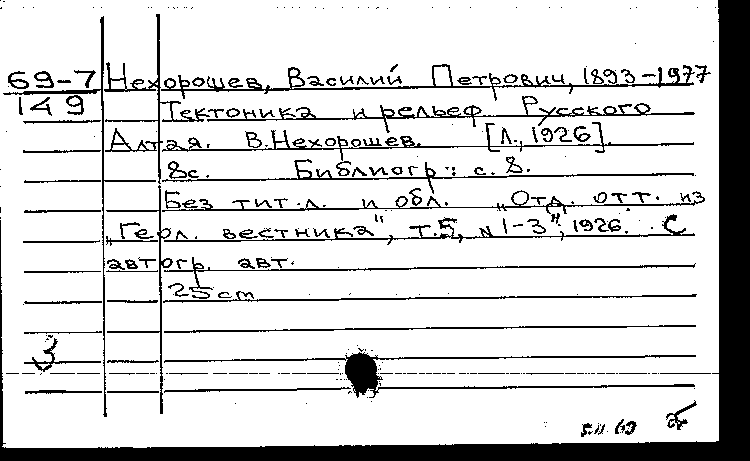 69-7 Нехорошев, Василий Петрович, 1893-1977
149 Тектоника и рельеф Русского
Алтая. В.Нехорошев. [Л., 1926].
8с. Библиогр: с. 8.
Без тит.л. и обл. „Отд. отт. из
„Геол. вестника", т.5, N 1-3", 1926. С
автогр. авт.
25 cm
3